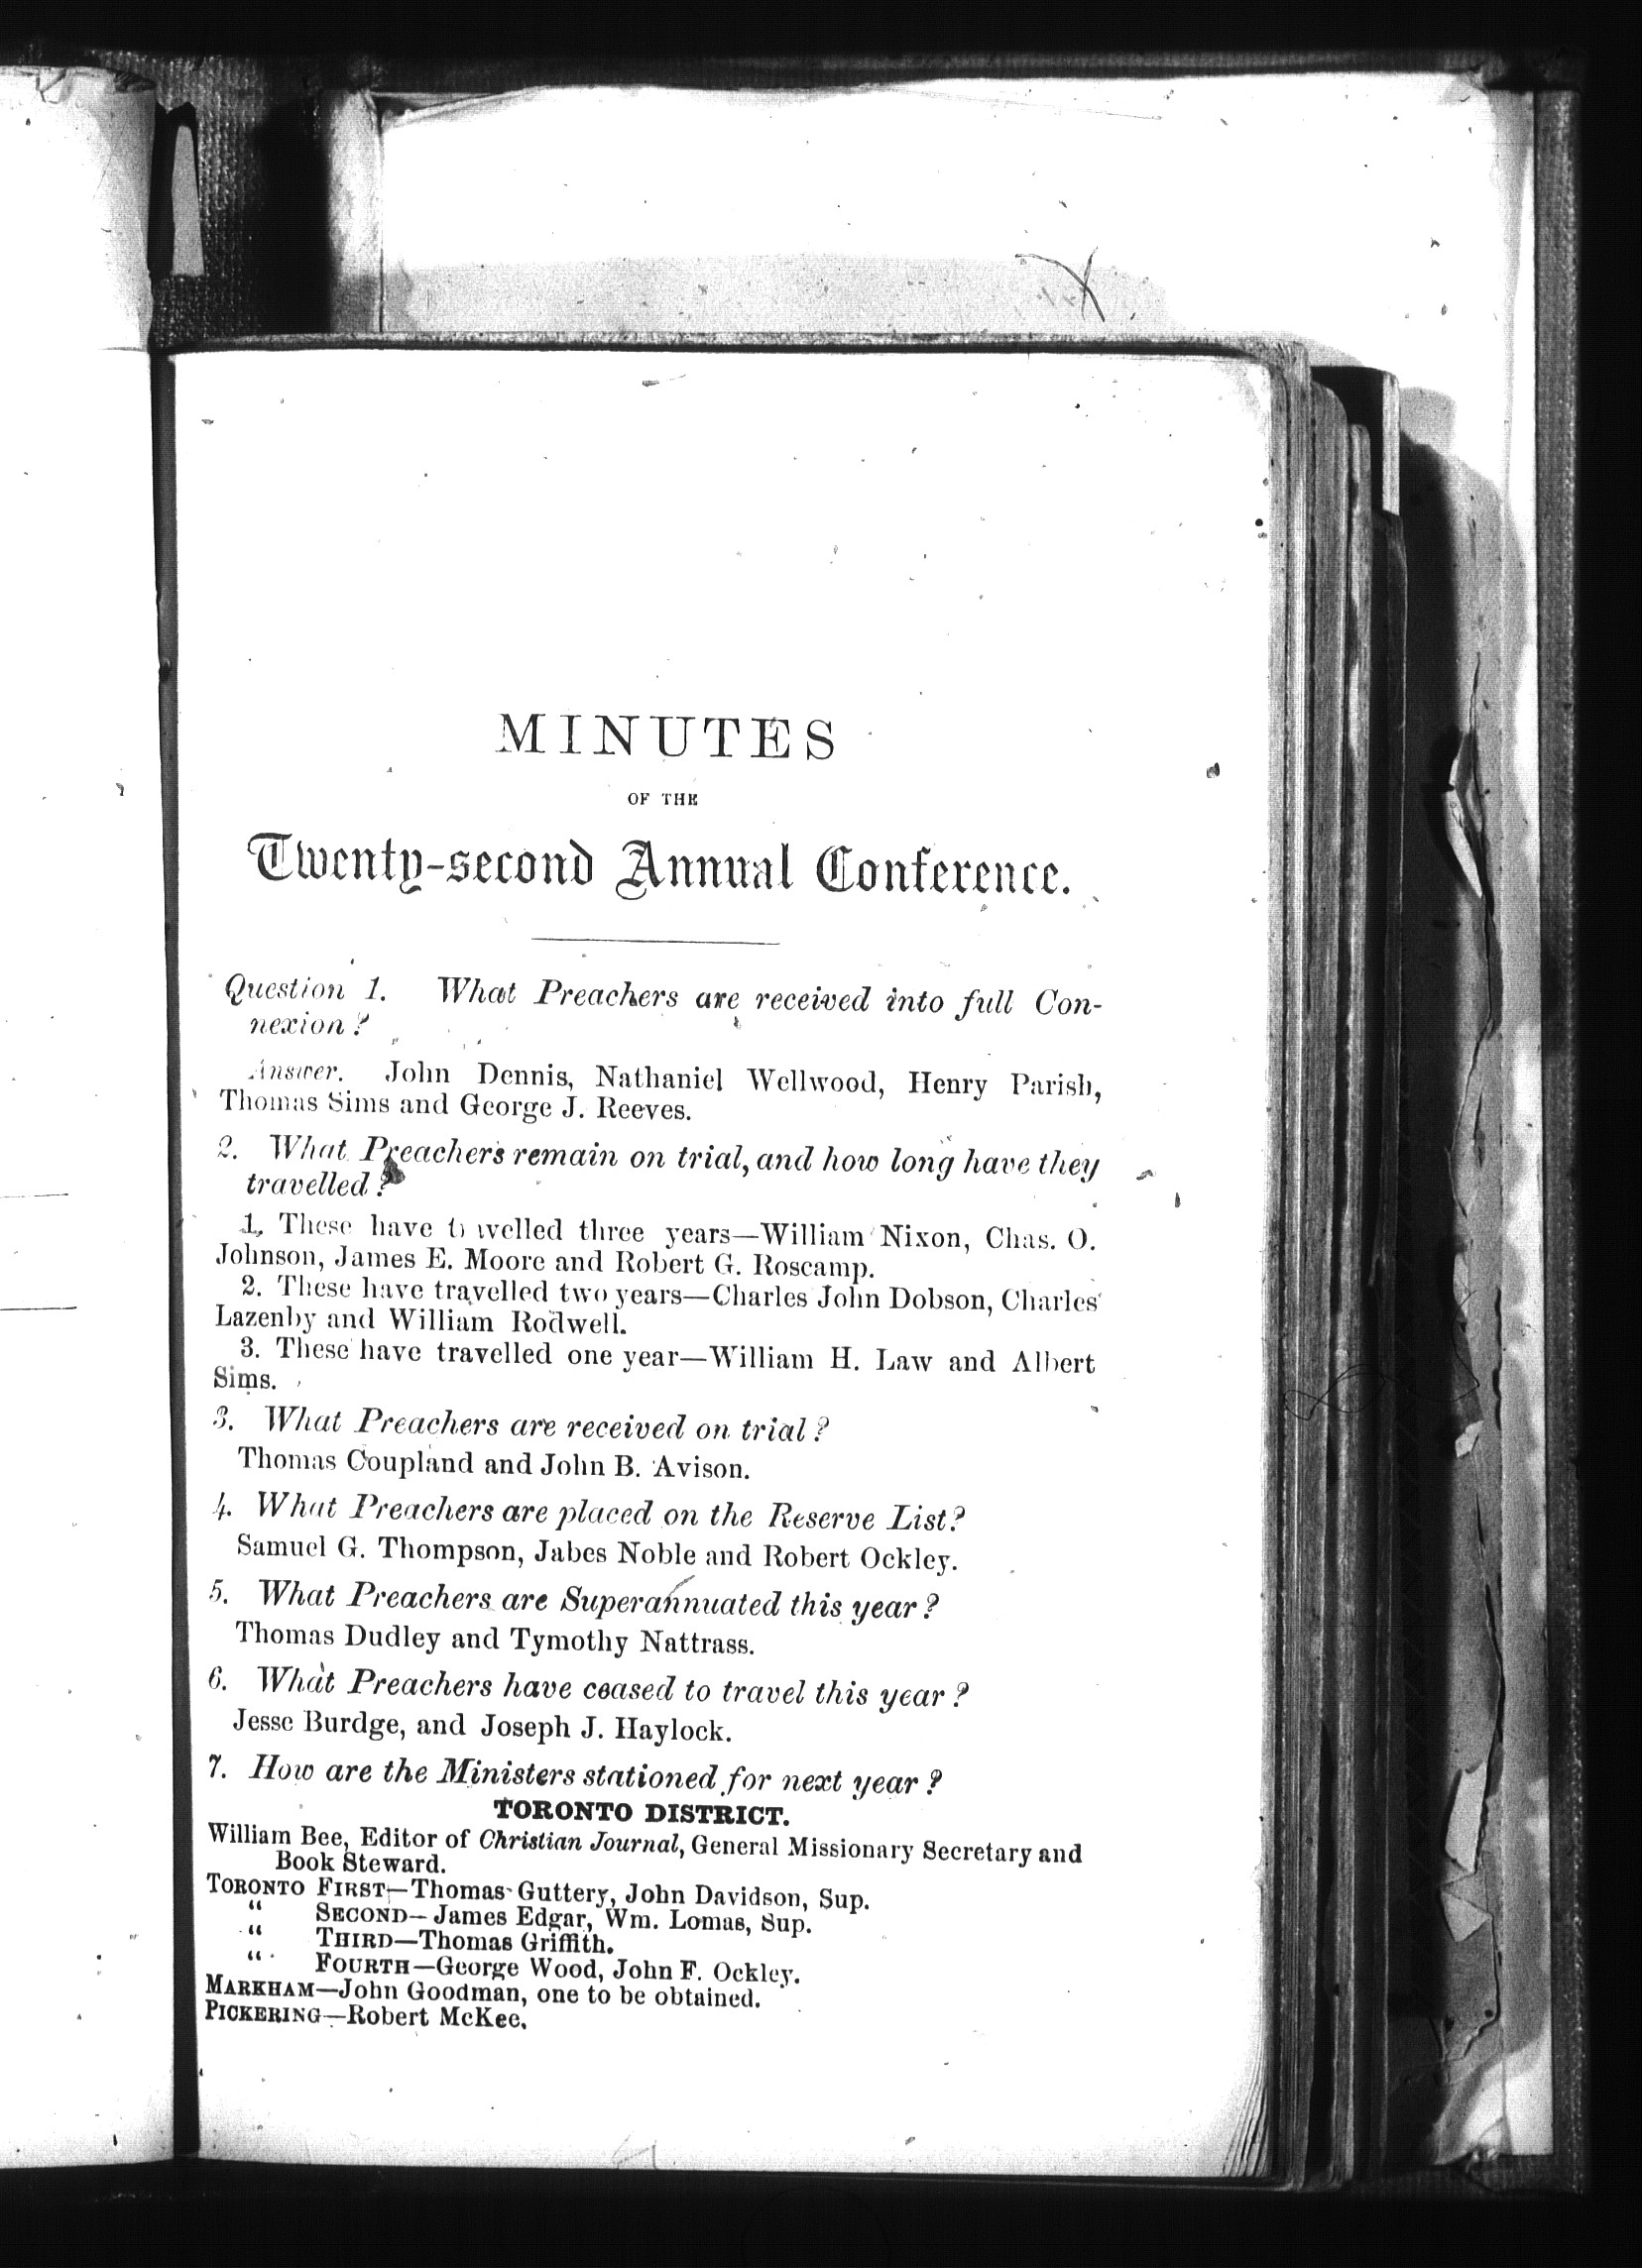 MINUTES
OF THE
Twenty-second Annual Conference.
Question 1. What Preachers are received into full Con-
nexion?
Answer. John Dennis, Nathaniel Wellwood, Henry Parish,
Thomas Sims and George J. Reeves.
2. What Preachers remain on trial, and how long have they
travelled?
1. These have travelled three years—William Nixon, Chas. O.
Johnson, James E. Moore and Robert G. Roscamp.
2. These have travelled two years—Charles John Dobson, Charles
Lazenby and William Rodwell.
3. These have travelled one year—William H. Law and Albert
Sims.
3. What Preachers are received on trial?
Thomas Coupland and John B. Avison.
4. What Preachers are placed on the Reserve List?
Samuel G. Thompson, Jabes Noble and Robert Ockley.
5. What Preachers are Superannuated this year?
Thomas Dudley and Tymothy Nattrass.
6. What Preachers have ceased to travel this year?
Jesse Burdge, and Joseph J. Haylock.
7. How are the Ministers stationed for next year?
TORONTO DISTRICT.
William Bee, Editor of Christian Journal, General Missionary Secretary and
Book Steward.
TORONTO FIRST—Thomas Guttery, John Davidson, Sup.
" SECOND—James Edgar, Wm. Lomas, Sup.
" THIRD—Thomas Griffith.
" FOURTH—George Wood, John F. Ockley.
MARKHAM—John Goodman, one to be obtained.
PICKERING—Robert McKee.